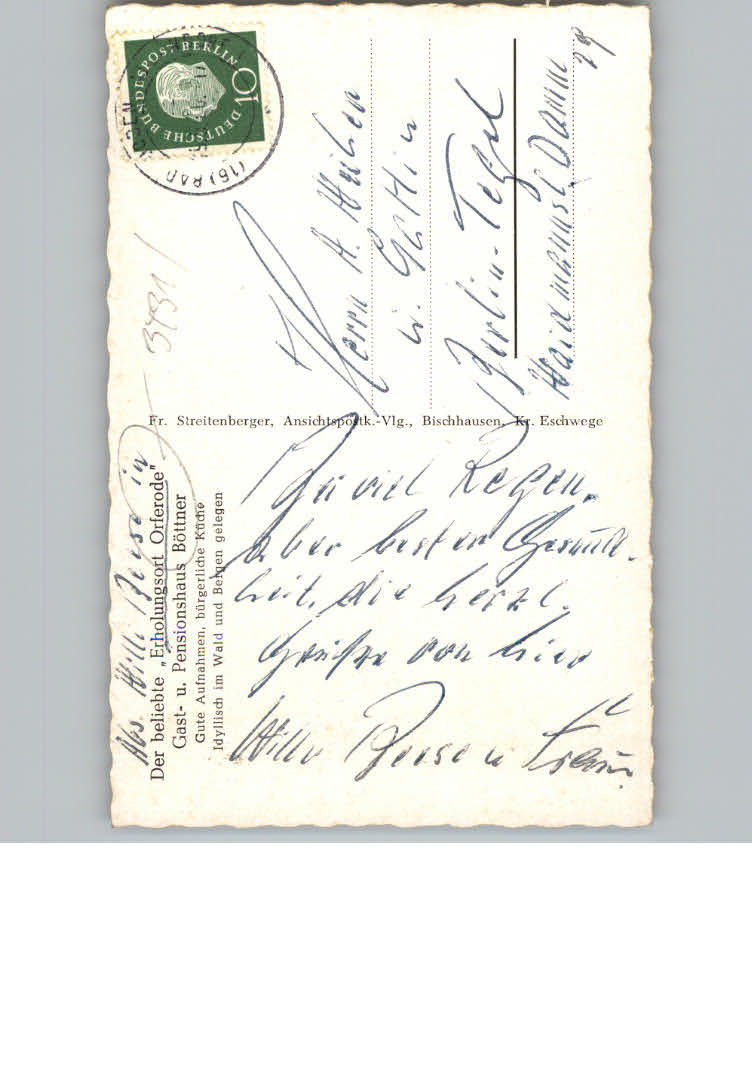 Abs. Willi Beese in
Der beliebte „Erholungsort Orferode"
Gast- u. Pensionshaus Böttner
Gute Aufnahmen, bürgerliche Küche
Idyllisch im Wald und Bergen gelegen
viel Regen,
aber bester Gesund-
heit, die herzl.
Grüße von hier
Willi Beese u Frau.
Fr. Streitenberger, Ansichtspostk.-Vlg., Bischhausen, Kr. Eschwege
3431
DEUTSCHE BUNDESPOST BERLIN
10
(16) BAD
Herrn A.
u. Gattin
Berlin-Tegel
Damm 29